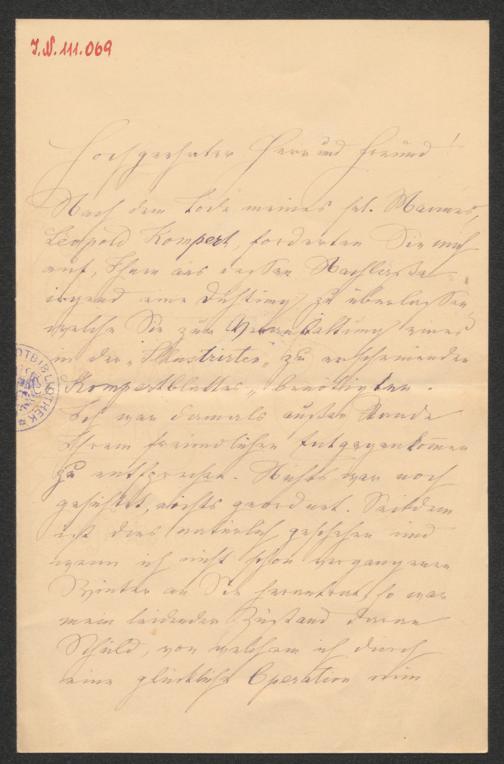 I.N. 111.069
Hochgeehrter Herr und Freund!
Nach dem Tode meines sel. Mannes,
Leopold Kompert, forderten Sie mich
auf, Ihnen aus dessen Nachlasse
irgend eine Dichtung zu überlassen
welche Sie zur Veranstaltung eines
in der „Illustrirten" zu erscheinenden
„Kompertblattes" benöthigten.
Ich war damals außer Stande
Ihrem freundlichen Entgegenkommen
zu entsprechen. Nichts war noch
gesichtet, nichts geordnet. Seitdem
ist dies natürlich geschehen und
wenn ich nicht schon vergangenen
Winter an Sie herantrat so war
mein leidender Zustand daran
Schuld, von welchem ich durch
eine glückliche Operation nun